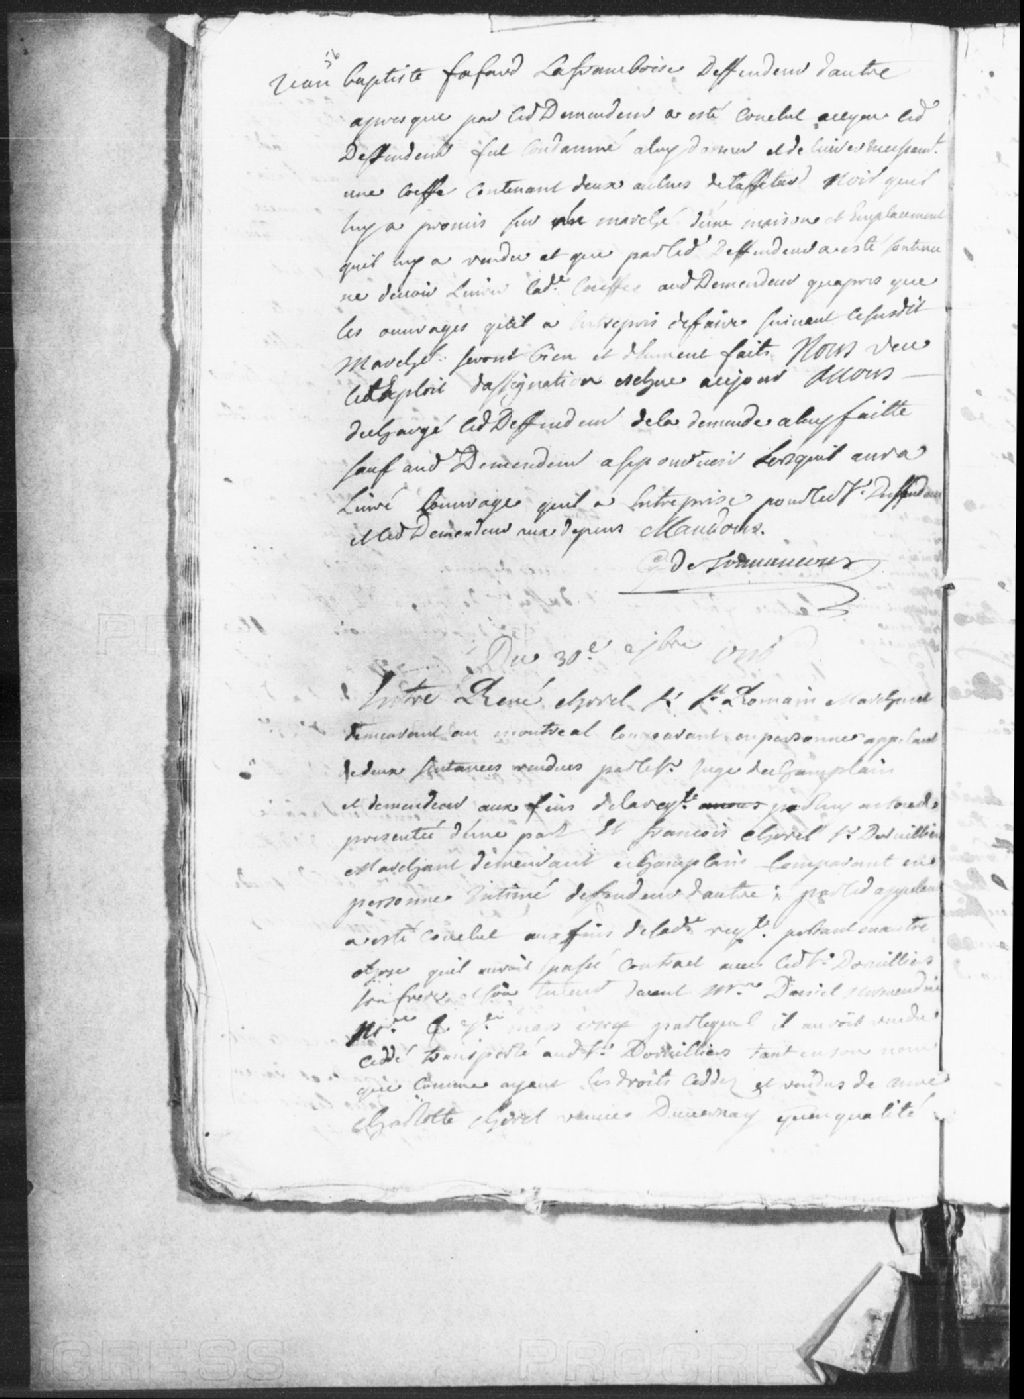 Jean baptiste fafard Laframboise Deffendeur dautre
apres que par led Demandeur a esté conclut aceque led
Deffendeur fut Condamné aluy donner et delivrer incessant.
une coeffe contenant deux aulnes de taffetas Noir quil
luy a promis sur un marché d'une maison et Emplacement
quil luy a vendu et que par led. Deffendeur a esté soutenu
ne devoir Livrer lad.e Coeffe aud Demandeur quapres que
les ouvrages qu'il a Entrepris defaire suivant le susdit
Marché seront bien et dhument faits Nous veu
led Exploit dassignation echue acejour Avons
dechargé led Deffendeur de la demande aluy faitte
sauf aud Demandeur a se pourvoir Lorsquil aura
Livré Louvrage quil a Entreprise pour led S.r Deffendeur
et led Demandeur aux depens Mandons.
G de Tonnancour
Du 30.e 9bre
Entre René chorel S.r S.t Romain Marchand
demeurant au montreal Comparant en personne appelant
de deux sentances rendues par le S.r Juge de Champlain
et demandeur aux fins de la req.te par luy
presentée d'une part Et francois chorel S.r Dorvilliers
Marchand demeurant a Champlain Comparant en
personne Intimé deffendeur dautre; par led appelant
a esté conclut aux fins de lad.e req.te
quil auroit passé Contract avec led S.r Dorvilliers
son frere et son tuteur devant M.re Daniel Normandin
N.re le mars par lequel il auroit vendu
ceddé transporté aud S.r Dorvilliers tant en son nom
que comme ayant les droits ceddez et vendus de
Charlotte chorel veuve Duvernay quen qualité